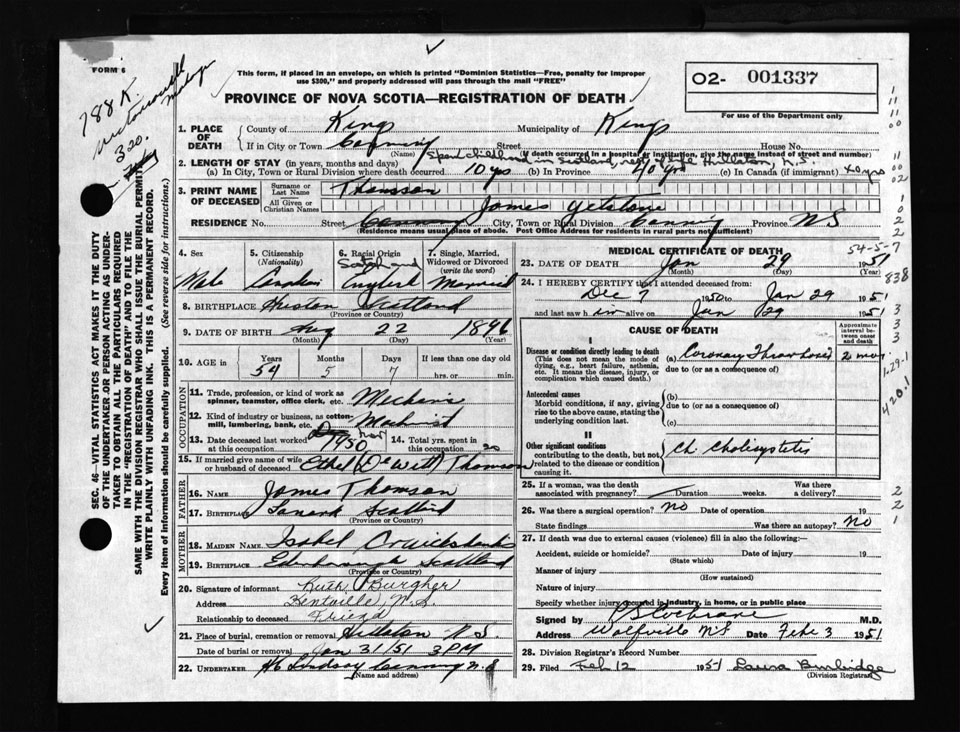 FORM 6
788 K.
320.
This form, if placed in an envelope, on which is printed "Dominion Statistics—Free, penalty for improper
use $300," and properly addressed will pass through the mail "FREE"
O2- 001337
For use of the Department only
PROVINCE OF NOVA SCOTIA—REGISTRATION OF DEATH
1. PLACE OF DEATH County of Kings Municipality of Kings
If in City or Town Canning Street House No.
(Name) (If death occurred in a hospital or institution, give its name instead of street and number)
Spent childhood in Scotland, N.S.
2. LENGTH OF STAY (in years, months and days)
(a) In City, Town or Rural Division where death occurred 10 yrs (b) In Province 40 yrs (c) In Canada (if immigrant) 40 yrs
3. PRINT NAME OF DECEASED Surname or Last Name Thomson
All Given or Christian Names James Yelstone
RESIDENCE No. Street Canning City, Town or Rural Division Canning Province NS
(Residence means usual place of abode. Post Office Address for residents in rural parts not sufficient)
4. Sex Male
5. Citizenship (Nationality) Canadian
6. Racial Origin Scotland
7. Single, Married, Widowed or Divorced (write the word) Married
8. BIRTHPLACE Scotland
(Province or Country)
9. DATE OF BIRTH Aug 22 1896
(Month) (Day) (Year)
10. AGE in Years 54 Months 5 Days 7 If less than one day old hrs. or min.
OCCUPATION
11. Trade, profession, or kind of work as spinner, teamster, office clerk, etc. Mechanic
12. Kind of industry or business, as cotton-mill, lumbering, bank, etc. Machinist
13. Date deceased last worked at this occupation 1950 14. Total yrs. spent in this occupation 20
15. If married give name of wife or husband of deceased Ethel (DeWitt) Thomson
FATHER
16. Name James Thomson
17. Birthplace Lanark Scotland
(Province or Country)
MOTHER
18. MAIDEN NAME Isabel Cruickshanks
19. BIRTHPLACE Edinburgh Scotland
(Province or Country)
20. Signature of informant Ruth Burgher
Address Kentville, N.S.
Relationship to deceased Friend
21. Place of burial, cremation or removal Hillaton N.S.
Date of burial or removal Jan 31/51 3 PM
22. UNDERTAKER Lindsay Canning N.S
(Name and address)
MEDICAL CERTIFICATE OF DEATH
54-5-7
23. DATE OF DEATH Jan 29 1951
(Month) (Day) (Year)
838
24. I HEREBY CERTIFY that I attended deceased from:
Dec 7 1950 to Jan 29 1951
and last saw him alive on Jan 29 1951
CAUSE OF DEATH
Approximate interval between onset and death
I
Disease or condition directly leading to death
(This does not mean the mode of dying, e.g., heart failure, asthenia, etc. It means the disease, injury, or complication which caused death.)
(a) Coronary Thrombosis 2 mos
due to (or as a consequence of)
Antecedent causes
Morbid conditions, if any, giving rise to the above cause, stating the underlying condition last.
(b)
due to (or as a consequence of)
(c)
1-29-1
420.1
II
Other significant conditions
contributing to the death, but not related to the disease or condition causing it.
Ch Cholecystitis
25. If a woman, was the death associated with pregnancy? Duration weeks. Was there a delivery?
26. Was there a surgical operation? No Date of operation 19
State findings Was there an autopsy? No
27. If death was due to external causes (violence) fill in also the following:—
Accident, suicide or homicide? Date of injury 19
(State which)
Manner of injury
(How sustained)
Nature of injury
Specify whether injury occurred in industry, in home, or in public place
Signed by Cochrane M.D.
Address Wolfville NS Date Feb 3 1951
28. Division Registrar's Record Number
29. Filed Feb 12 1951 Laura Burbidge
(Division Registrar)
SEC. 46—VITAL STATISTICS ACT MAKES IT THE DUTY
OF THE UNDERTAKER OR PERSON ACTING AS UNDER-
TAKER TO OBTAIN ALL THE PARTICULARS REQUIRED
IN THE "REGISTRATION OF DEATH" AND TO FILE THE
SAME WITH THE DIVISION REGISTRAR WHO SHALL ISSUE THE BURIAL PERMIT
WRITE PLAINLY WITH UNFADING INK. THIS IS A PERMANENT RECORD.
Every item of information should be carefully supplied. (See reverse side for instructions.)